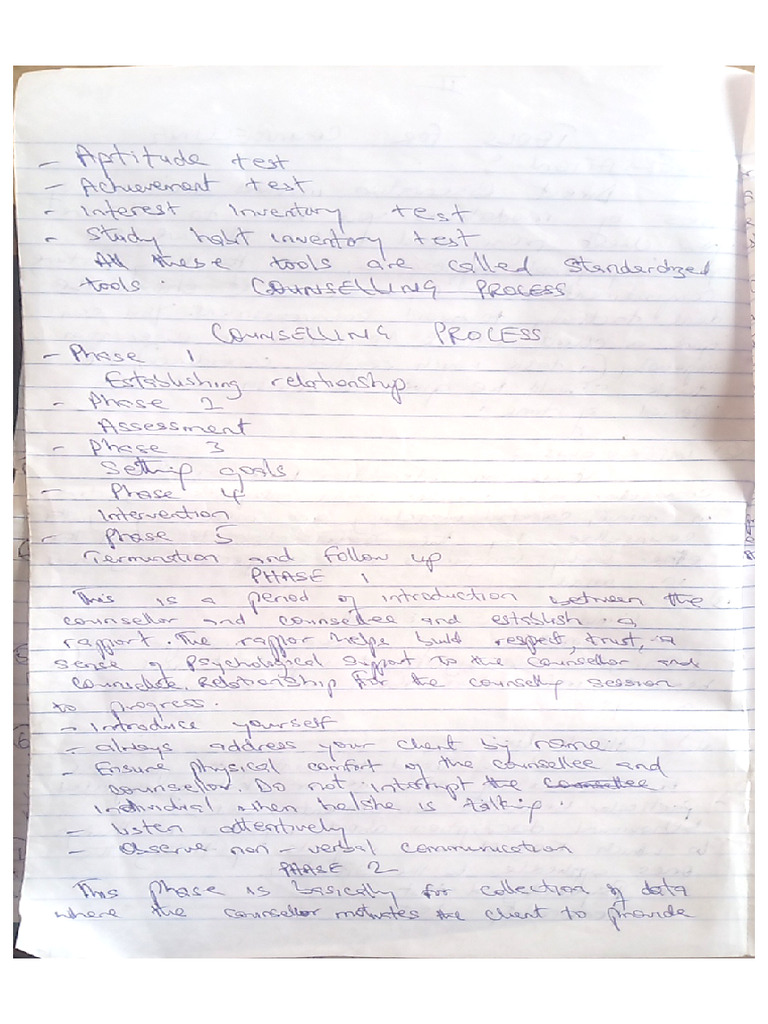 - Aptitude test
- Achievement test
- Interest Inventory test
- Study habit inventory test
All these tools are called Standardized
tools. COUNSELLING PROCESS
COUNSELLING PROCESS
- Phase 1
Establishing relationship
- Phase 2
Assessment
- Phase 3
Setting goals
- Phase 4
Intervention
- Phase 5
Termination and follow up
PHASE 1
This is a period of introduction between the
counsellor and counsellee and establish a
rapport. The rappor helps build respect, trust, a
sense of psychological support to the counsellor and
relationship for the counselling session
to progress.
- Introduce yourself
- always address your client by name.
- Ensure physical comfort of the counsellee and
counsellor. Do not interrupt the
individual when he/she is talking.
- Listen attentively
- Observe non-verbal communication
PHASE 2
This phase is basically for collection of data
where the counsellor motivates the client to provide